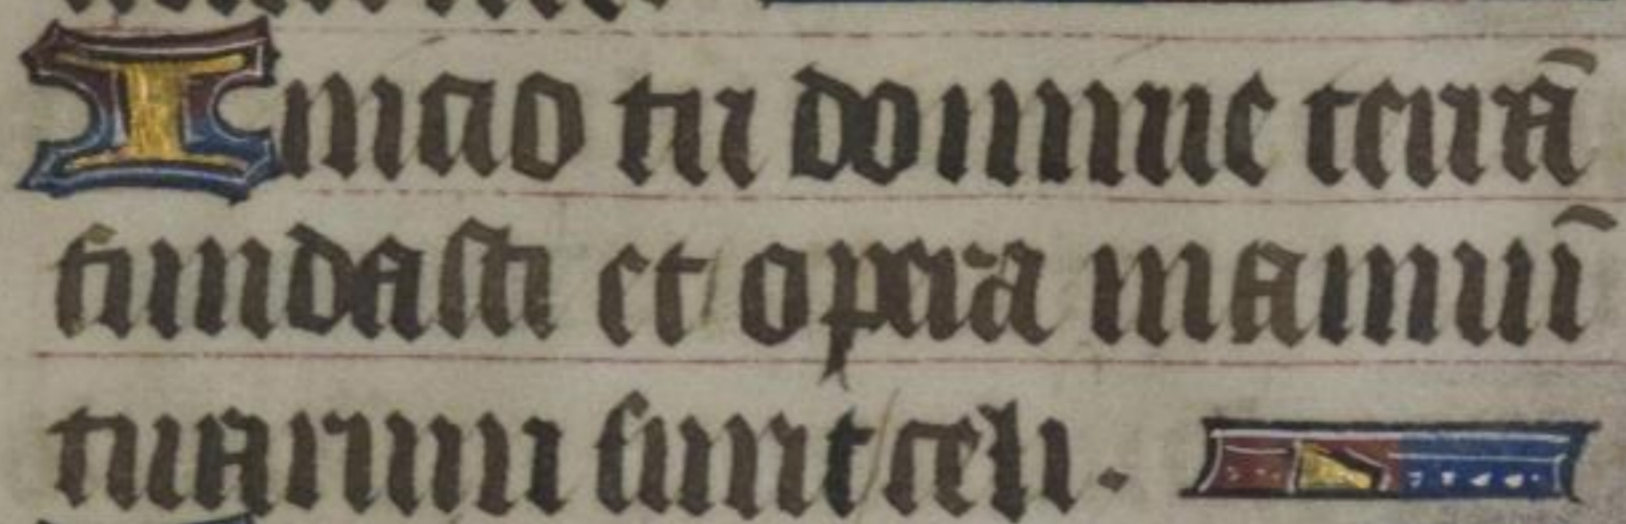 Inicio tu domine terrā
fundasti et opera manuū
tuarum sunt celi .